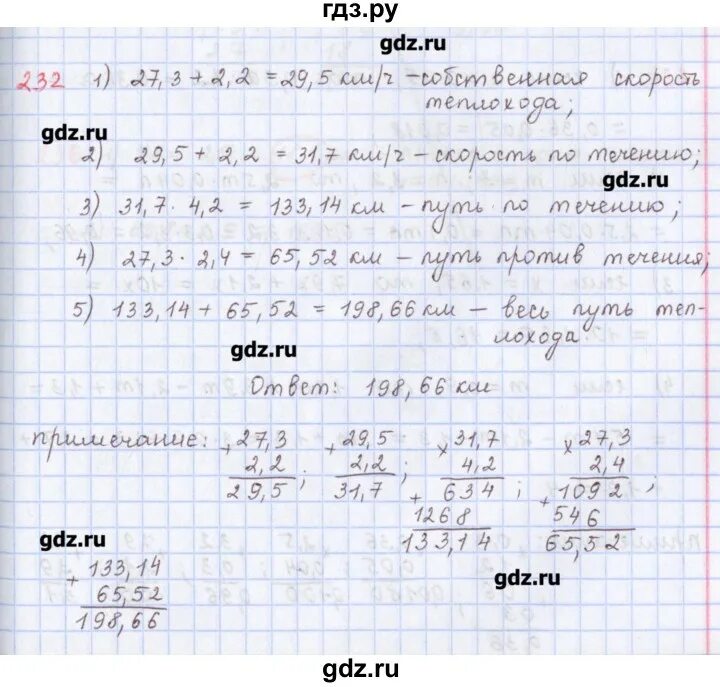 гдз.ру
gdz.ru
232 1) 27,3 + 2,2 = 29,5 км/ч - собственная скорость
теплохода;
gdz.ru
2) 29,5 + 2,2 = 31,7 км/ч - скорость по течению;
gdz.ru
3) 31,7 · 4,2 = 133,14 км - путь по течению;
4) 27,3 · 2,4 = 65,52 км - путь против течения;
5) 133,14 + 65,52 = 198,66 км - весь путь теп-
лохода.
gdz.ru
Ответ: 198,66 км
примечание: + 27,3 + 29,5 × 31,7 × 27,3
2,2 2,2 4,2 2,4
29,5 ; 31,7 ; + 634 ; + 1092 ;
1268 546
133,14 65,52
gdz.ru
gdz.ru
+ 133,14
65,52
198,66
gdz.ru